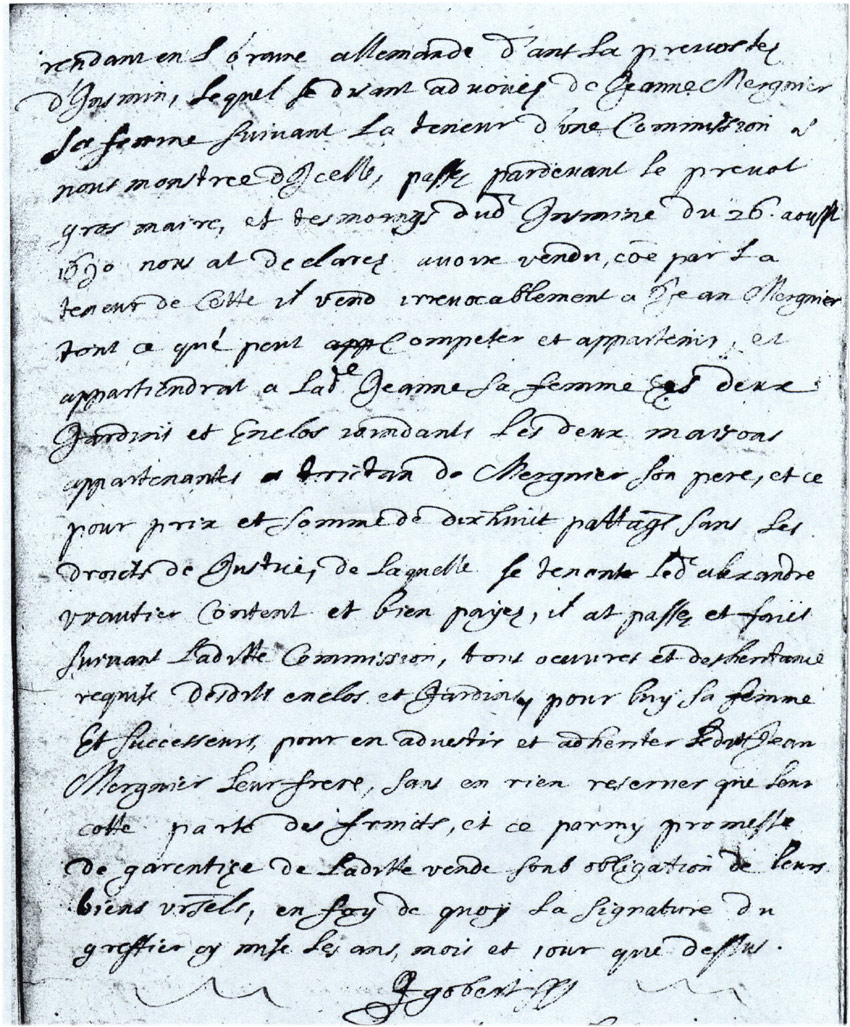 rendant en Loraine allemande d'ant La prevostez
d'Insmin, Lequel se disant advouez de Jeanne Mergnier
Sa femme suivant La teneur d'une Commission a
nous monstree d'Icelle, passez pardevant le prevot
gros maire, et tesmoings dud Insmine du 26. aoust
1690 nous at declarez avoire vendu, coe par La
teneur de Cette il vend irrevocablement a Jean Mergnier
tout ce qué peut app Competer et appartenir, et
appartiendrat a Lade Jeanne sa femme es deux
Jardins et Enclos joindants Les deux maisons
appartenantes a tristan de Mergnier son pere, et ce
pour prix et somme de dixhuit pattag sans les
droicts de Justice, de laquelle se tenante led alexandre
vrautier Content et bien payez, il at passez et faict
suivant Laditte Commission, tous oeuvres et desheritance
requise desdits enclos et Jardins, pour luy sa femme
Et successeurs, pour en advestir et adheriter Ledit Jean
Mergnier Leur frere, sans en rien reserver que leur
cotte parte des fruits, et ce parmy promesse
de garentize de Laditte vende soub obligation de leurs
biens vrsels, en foy de quoy La signature du
greffier cy mise les ans, mois et jour que dessus.
J gobert